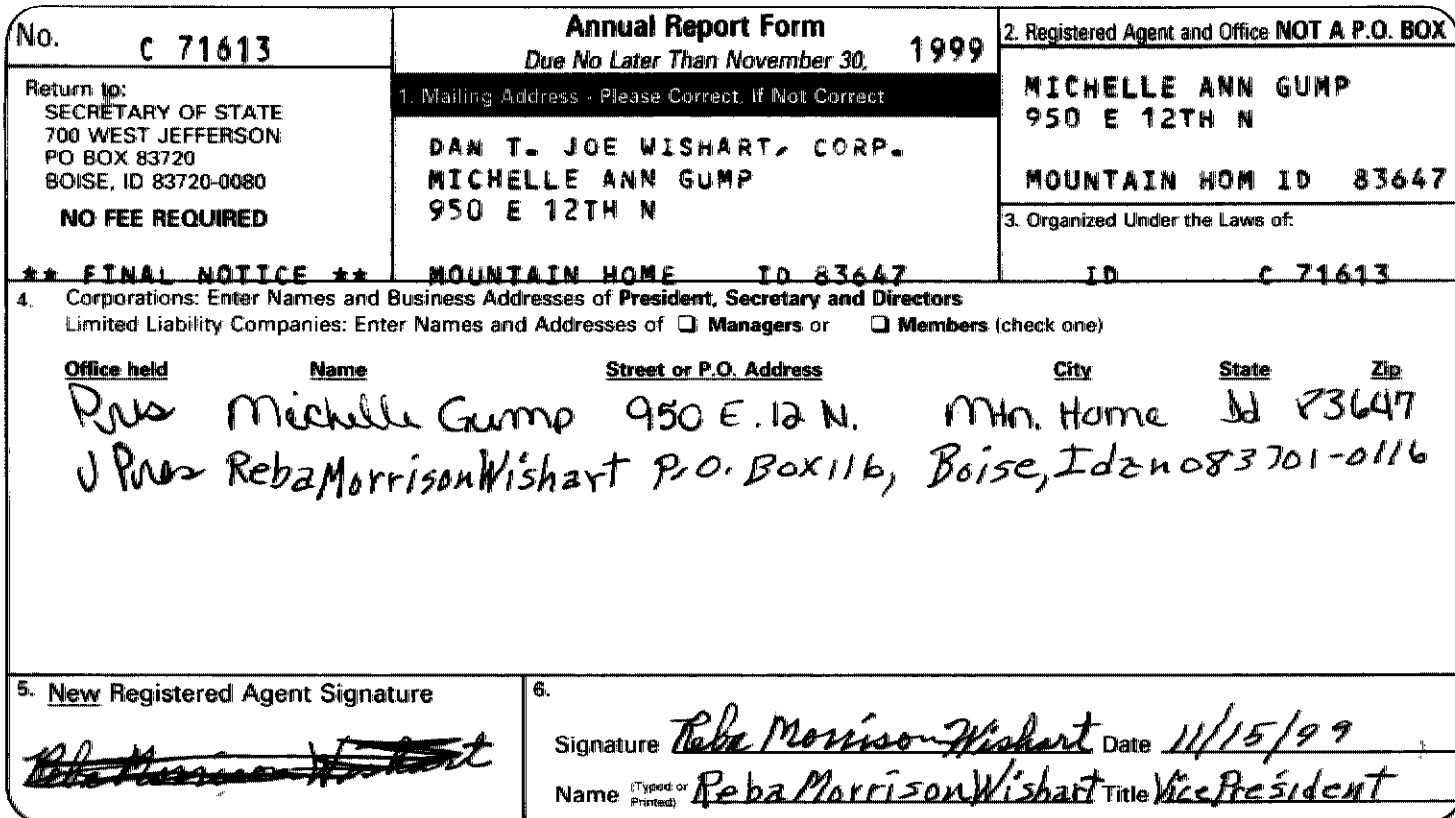 No. C 71613
Return to:
SECRETARY OF STATE
700 WEST JEFFERSON
PO BOX 83720
BOISE, ID 83720-0080
NO FEE REQUIRED
** FINAL NOTICE **
Annual Report Form
Due No Later Than November 30, 1999
1. Mailing Address - Please Correct, If Not Correct
DAN T. JOE WISHART, CORP.
MICHELLE ANN GUMP
950 E 12TH N
MOUNTAIN HOME ID 83647
2. Registered Agent and Office NOT A P.O. BOX
MICHELLE ANN GUMP
950 E 12TH N
MOUNTAIN HOM ID 83647
3. Organized Under the Laws of:
ID C 71613
4. Corporations: Enter Names and Business Addresses of President, Secretary and Directors
Limited Liability Companies: Enter Names and Addresses of ❑ Managers or ❑ Members (check one)
Office held Name Street or P.O. Address City State Zip
Pres Michelle Gump 950 E. 12 N. Mtn. Home Id 83647
V Pres Reba Morrison Wishart P.O. Box 116, Boise, Idaho 83701-0116
5. New Registered Agent Signature
Reba Morrison Wishart
6.
Signature Reba Morrison Wishart Date 11/15/99
Name (Typed or Printed) Reba Morrison Wishart Title Vice President